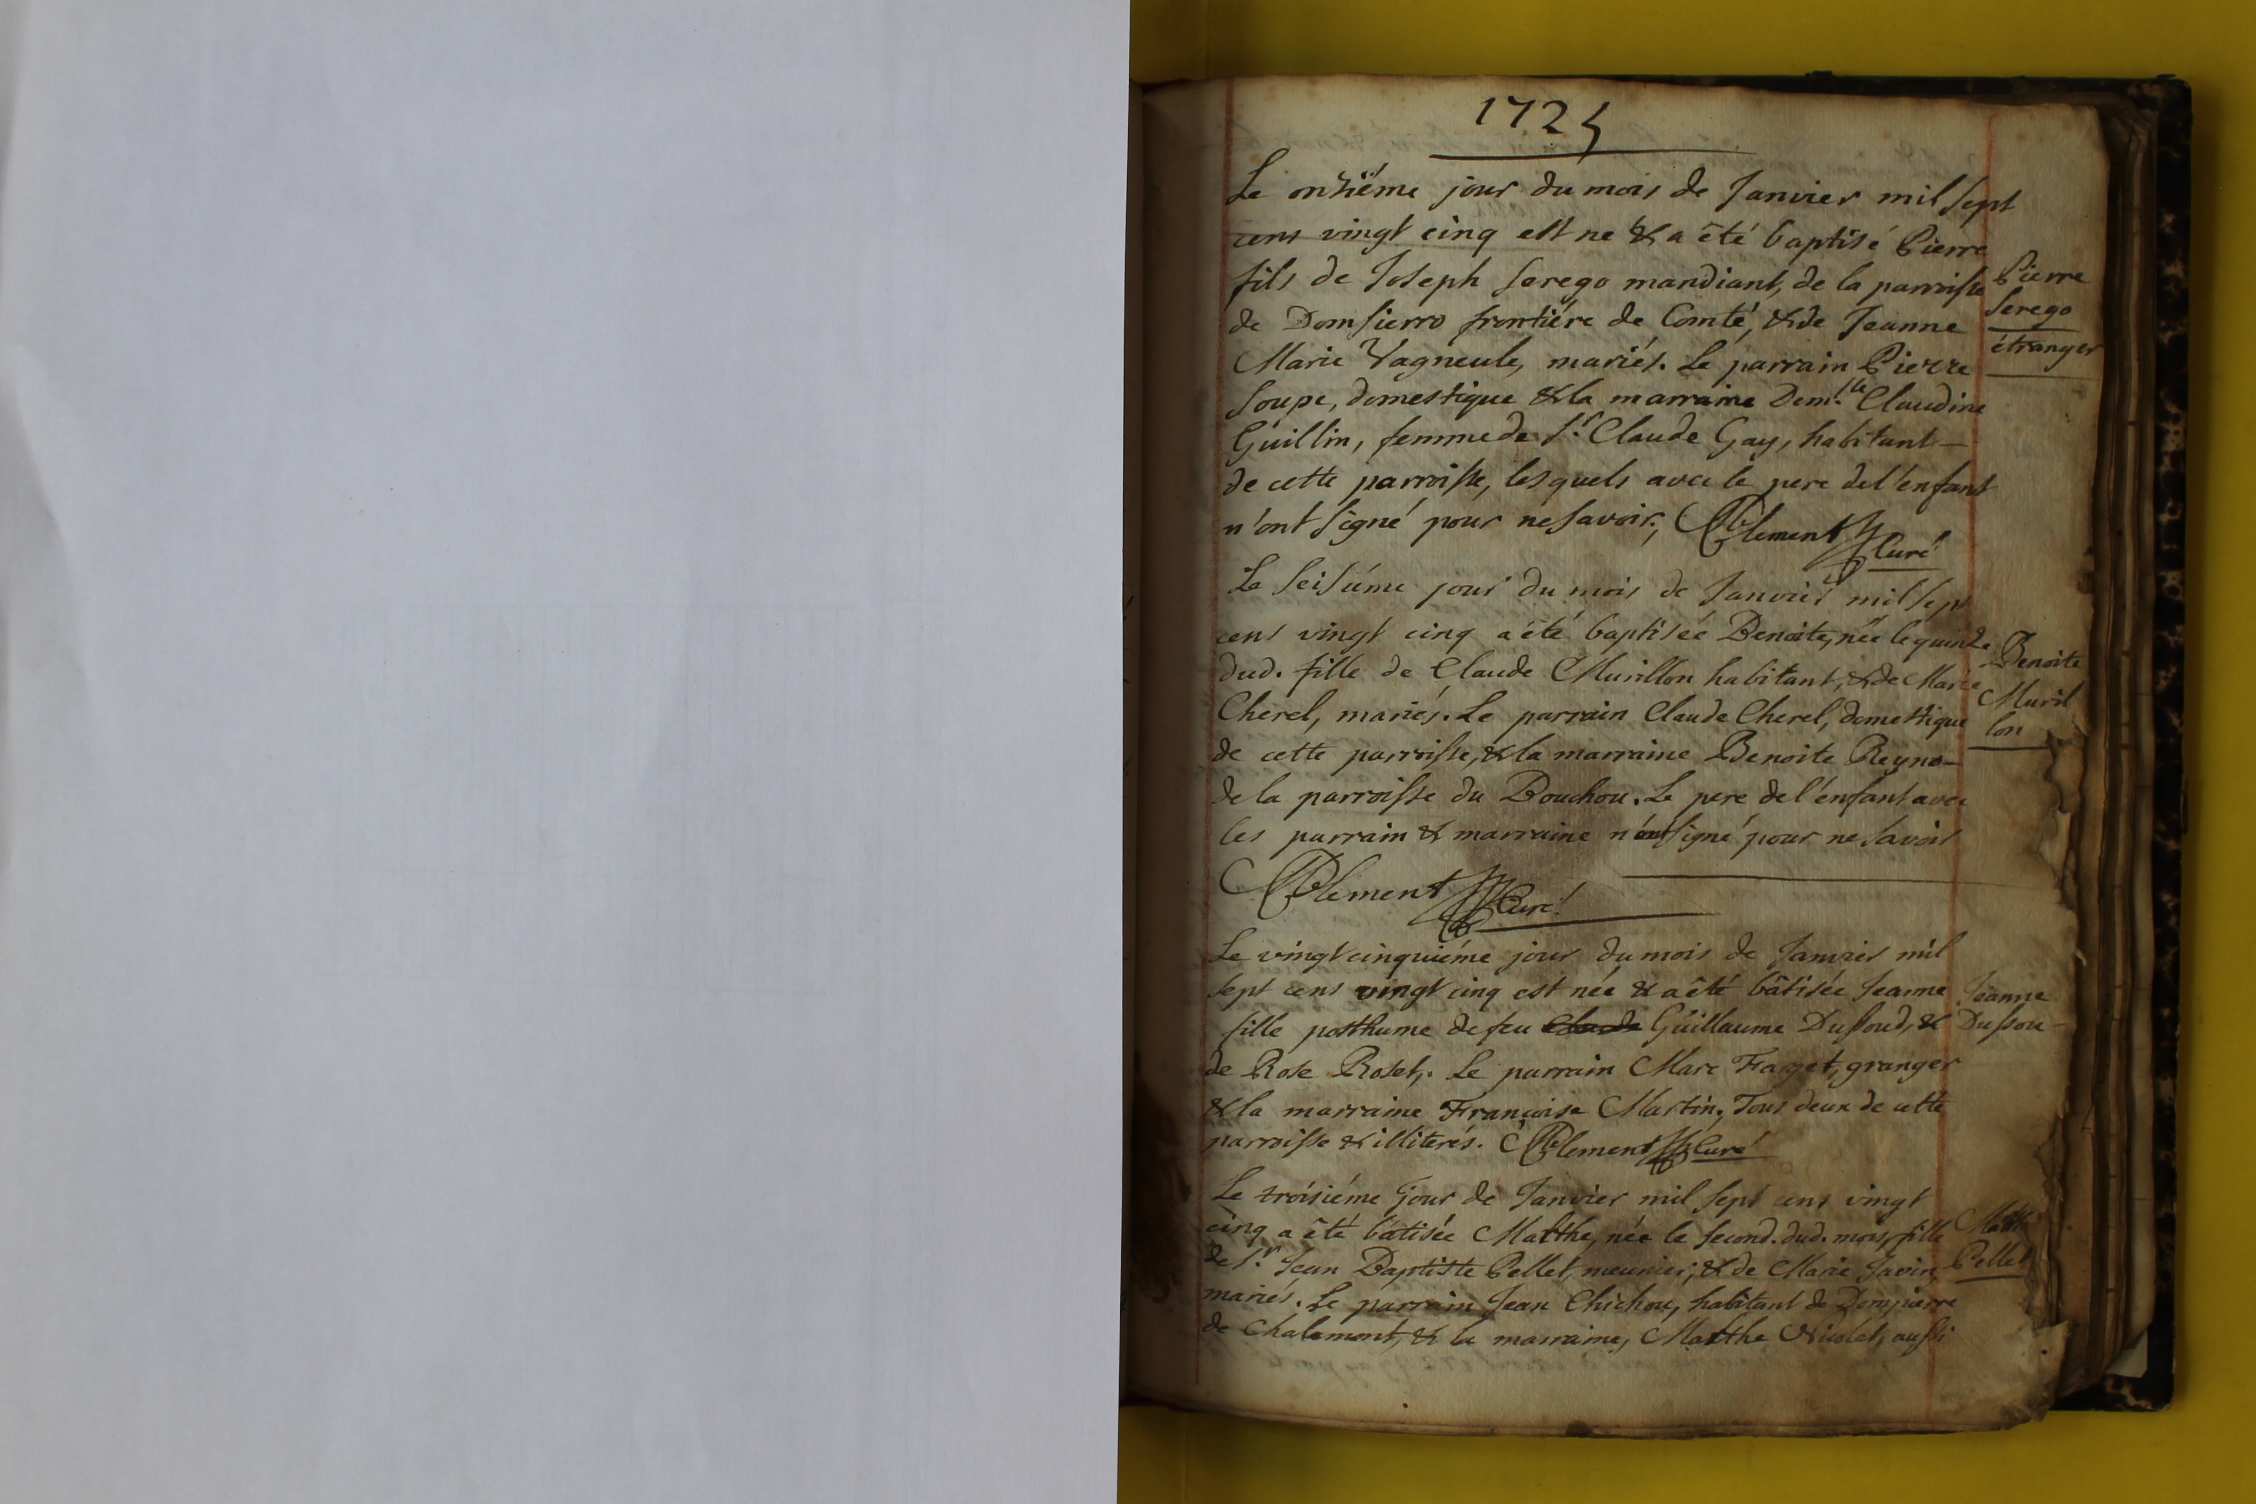 1725
Le onziéme jour du mois de Janvier mil sept
cens vingt cinq est ne & a êté baptisé Pierre
fils de Joseph Serego mandiant, de la parroisse
de Domsierro frontiére de Comté, & de Jeanne
Marie Vagneule, mariés. Le parrain Pierre
Soupe, domestique & la marraine Dem.lle Claudine
Guillin, femme de Sr. Claude Gay, habitant
de cette parroisse, lesquels avec le pere de l'enfant
n'ont signé pour ne savoir. Clement Curé
Pierre
Serego
étranger
Le seisiéme jour du mois de Janvier mil sept
cens vingt cinq a été baptisée Benoite, née le quinze
dud. fille de Claude Murillon habitant, & de Marie
Cherel, mariés. Le parrain Claude Cherel, domestique
de cette parroisse, & la marraine Benoite Reyno
de la parroisse du Bouchou. Le pere de l'enfant avec
les parrain & marraine n'ont signé pour ne savoir
Clement Curé
Benoite
Muril
lon
Le vingt cinquiéme jour du mois de Janvier mil
sept cens vingt cinq est née & a été bâtisée Jeanne
fille posthume de feu Claude Guillaume Dussoud, &
de Rose Roset. Le parrain Marc Faget, granger
& la marraine Françoise Martin. Tous deux de cette
parroisse & illiterés. Clement Curé
Jeanne
Dussou
Le troisiéme jour de Janvier mil sept cens vingt
cinq a êté bâtisée Marthe, née le second. dud. mois, fille
de Sr. Jean Baptiste Pellet, meunier, & de Marie Javin,
mariés. Le parrain Jean Chichou, habitant de Dompierre
de Chalamont, & la marraine, Marthe Nicolet, aussi
Marth
Pellet